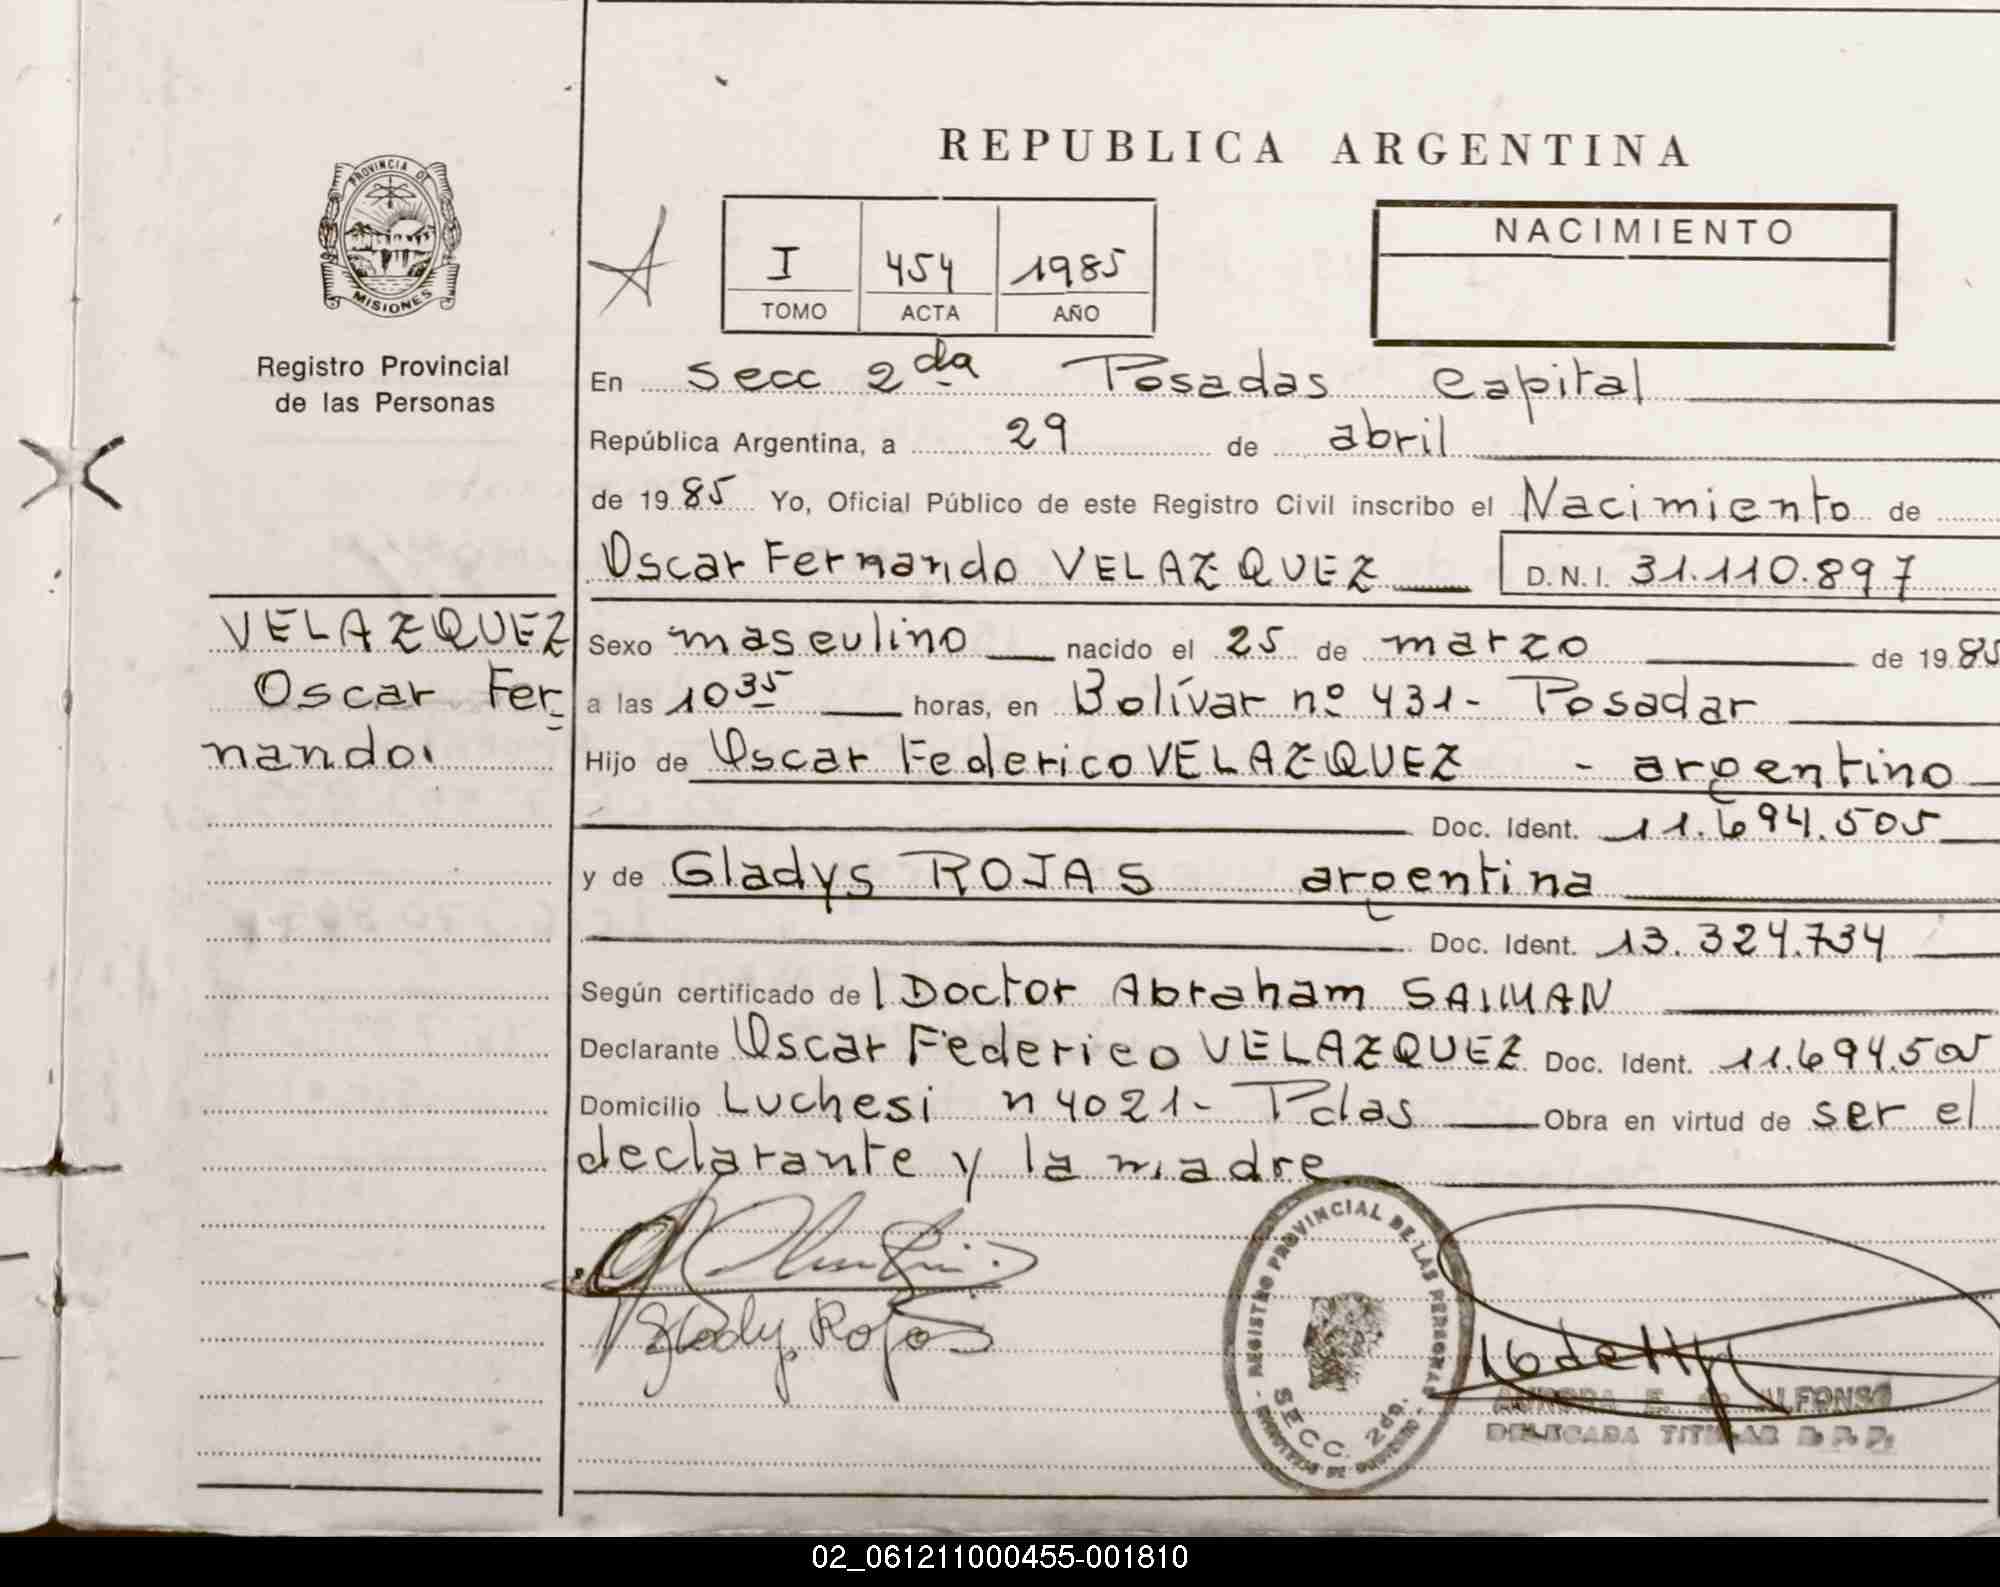 REPUBLICA ARGENTINA
PROVINCIA DE
MISIONES
Registro Provincial
de las Personas
I 454 1985
TOMO ACTA AÑO
NACIMIENTO
En Secc 2da Posadas Capital
República Argentina, a 29 de abril
de 1985 Yo, Oficial Público de este Registro Civil inscribo el Nacimiento de
Oscar Fernando VELAZQUEZ D.N.I. 31.110.897
VELAZQUEZ
Oscar Fer
nando.
Sexo masculino nacido el 25 de marzo de 1985
a las 10 35 horas, en Bolívar nº 431- Posadas
Hijo de Oscar Federico VELAZQUEZ - argentino
Doc. Ident. 11.694.505
y de Gladys ROJAS argentina
Doc. Ident. 13.324.734
Según certificado del Doctor Abraham
Declarante Oscar Federico VELAZQUEZ Doc. Ident. 11.694.505
Domicilio Luchesi n 4021- Pdas Obra en virtud de ser el
declarante y la madre
Gladys Rojas
REGISTRO PROVINCIAL DE LAS PERSONAS
SECC. 2da.
AURORA E. de ALFONSO
DELEGADA TITULAR R. P. P.
02_061211000455-001810